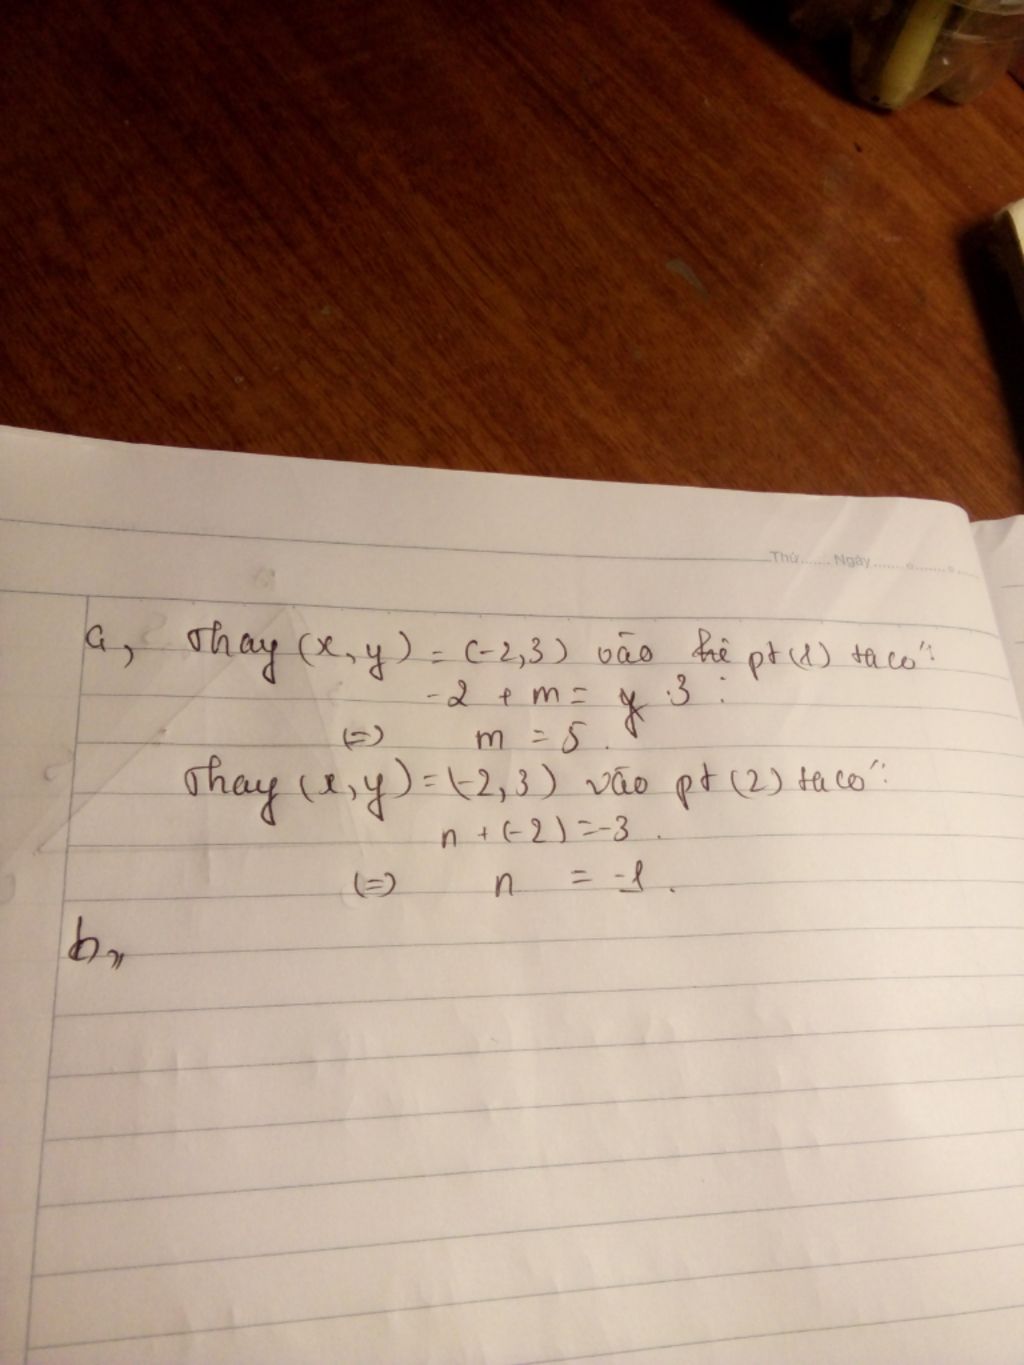 Thứ....... Ngày.......
a, Thay (x, y) = (-2,3) vào pt (1) ta có:
-2 + m = 3
(=) m = 5.
Thay (x, y) = (-2, 3) vào pt (2) ta có:
n + (-2) = -3.
(=) n = -1.
b,